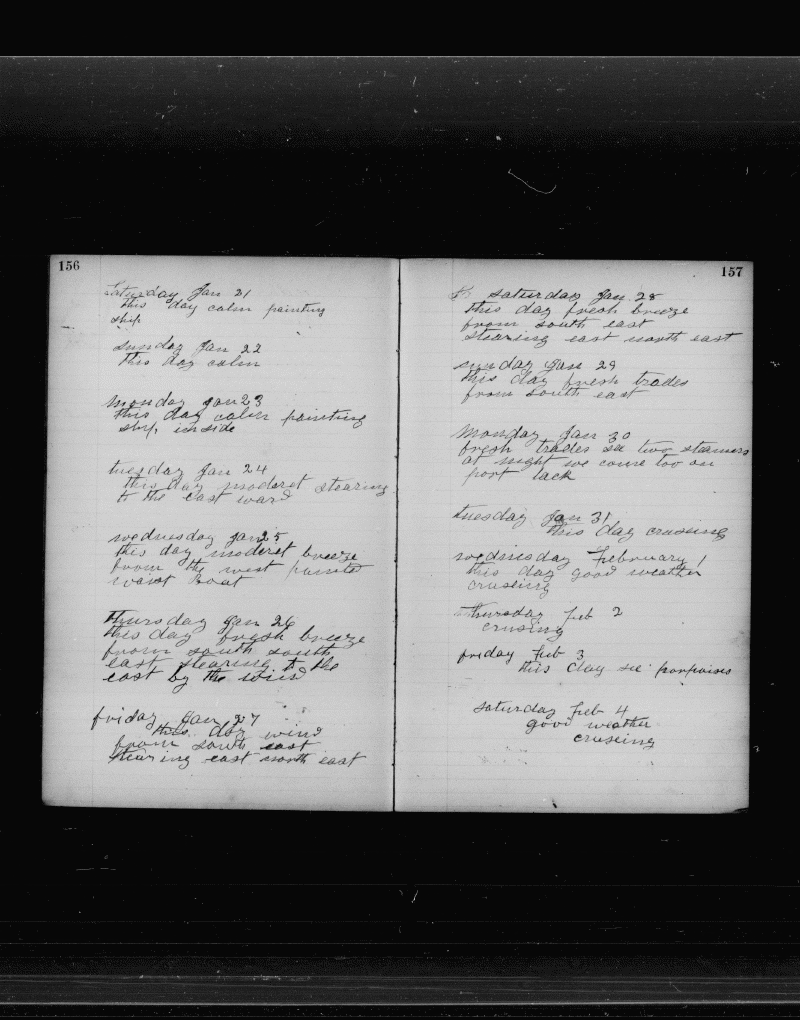 156
Saturday Jan 21
this day calm painting
ship
sunday Jan 22
this day calm
monday Jan 23
this day calm painting
ship inside
tuesday Jan 24
this day moderet stearing
to the east ward
wednesday Jan 25
this day moderet breeze
from the west painted
waist Boat
thursday Jan 26
this day fresh breeze
from south south
east stearing to the
east by the wind
friday Jan 27
this day wind
from south east
stearing east north east
157
saturday Jan 28
this day fresh breeze
from south east
stearing east north east
sunday Jan 29
this day fresh trades
from south east
Monday Jan 30
fresh trades see two steamers
at night we come too on
port tack
tuesday Jan 31
this day cruseing
wednesday February 1
this day good weather
cruseing
thursday Feb 2
crusing
friday Feb 3
this day see porpoises
saturday Feb 4
good weather
cruseing